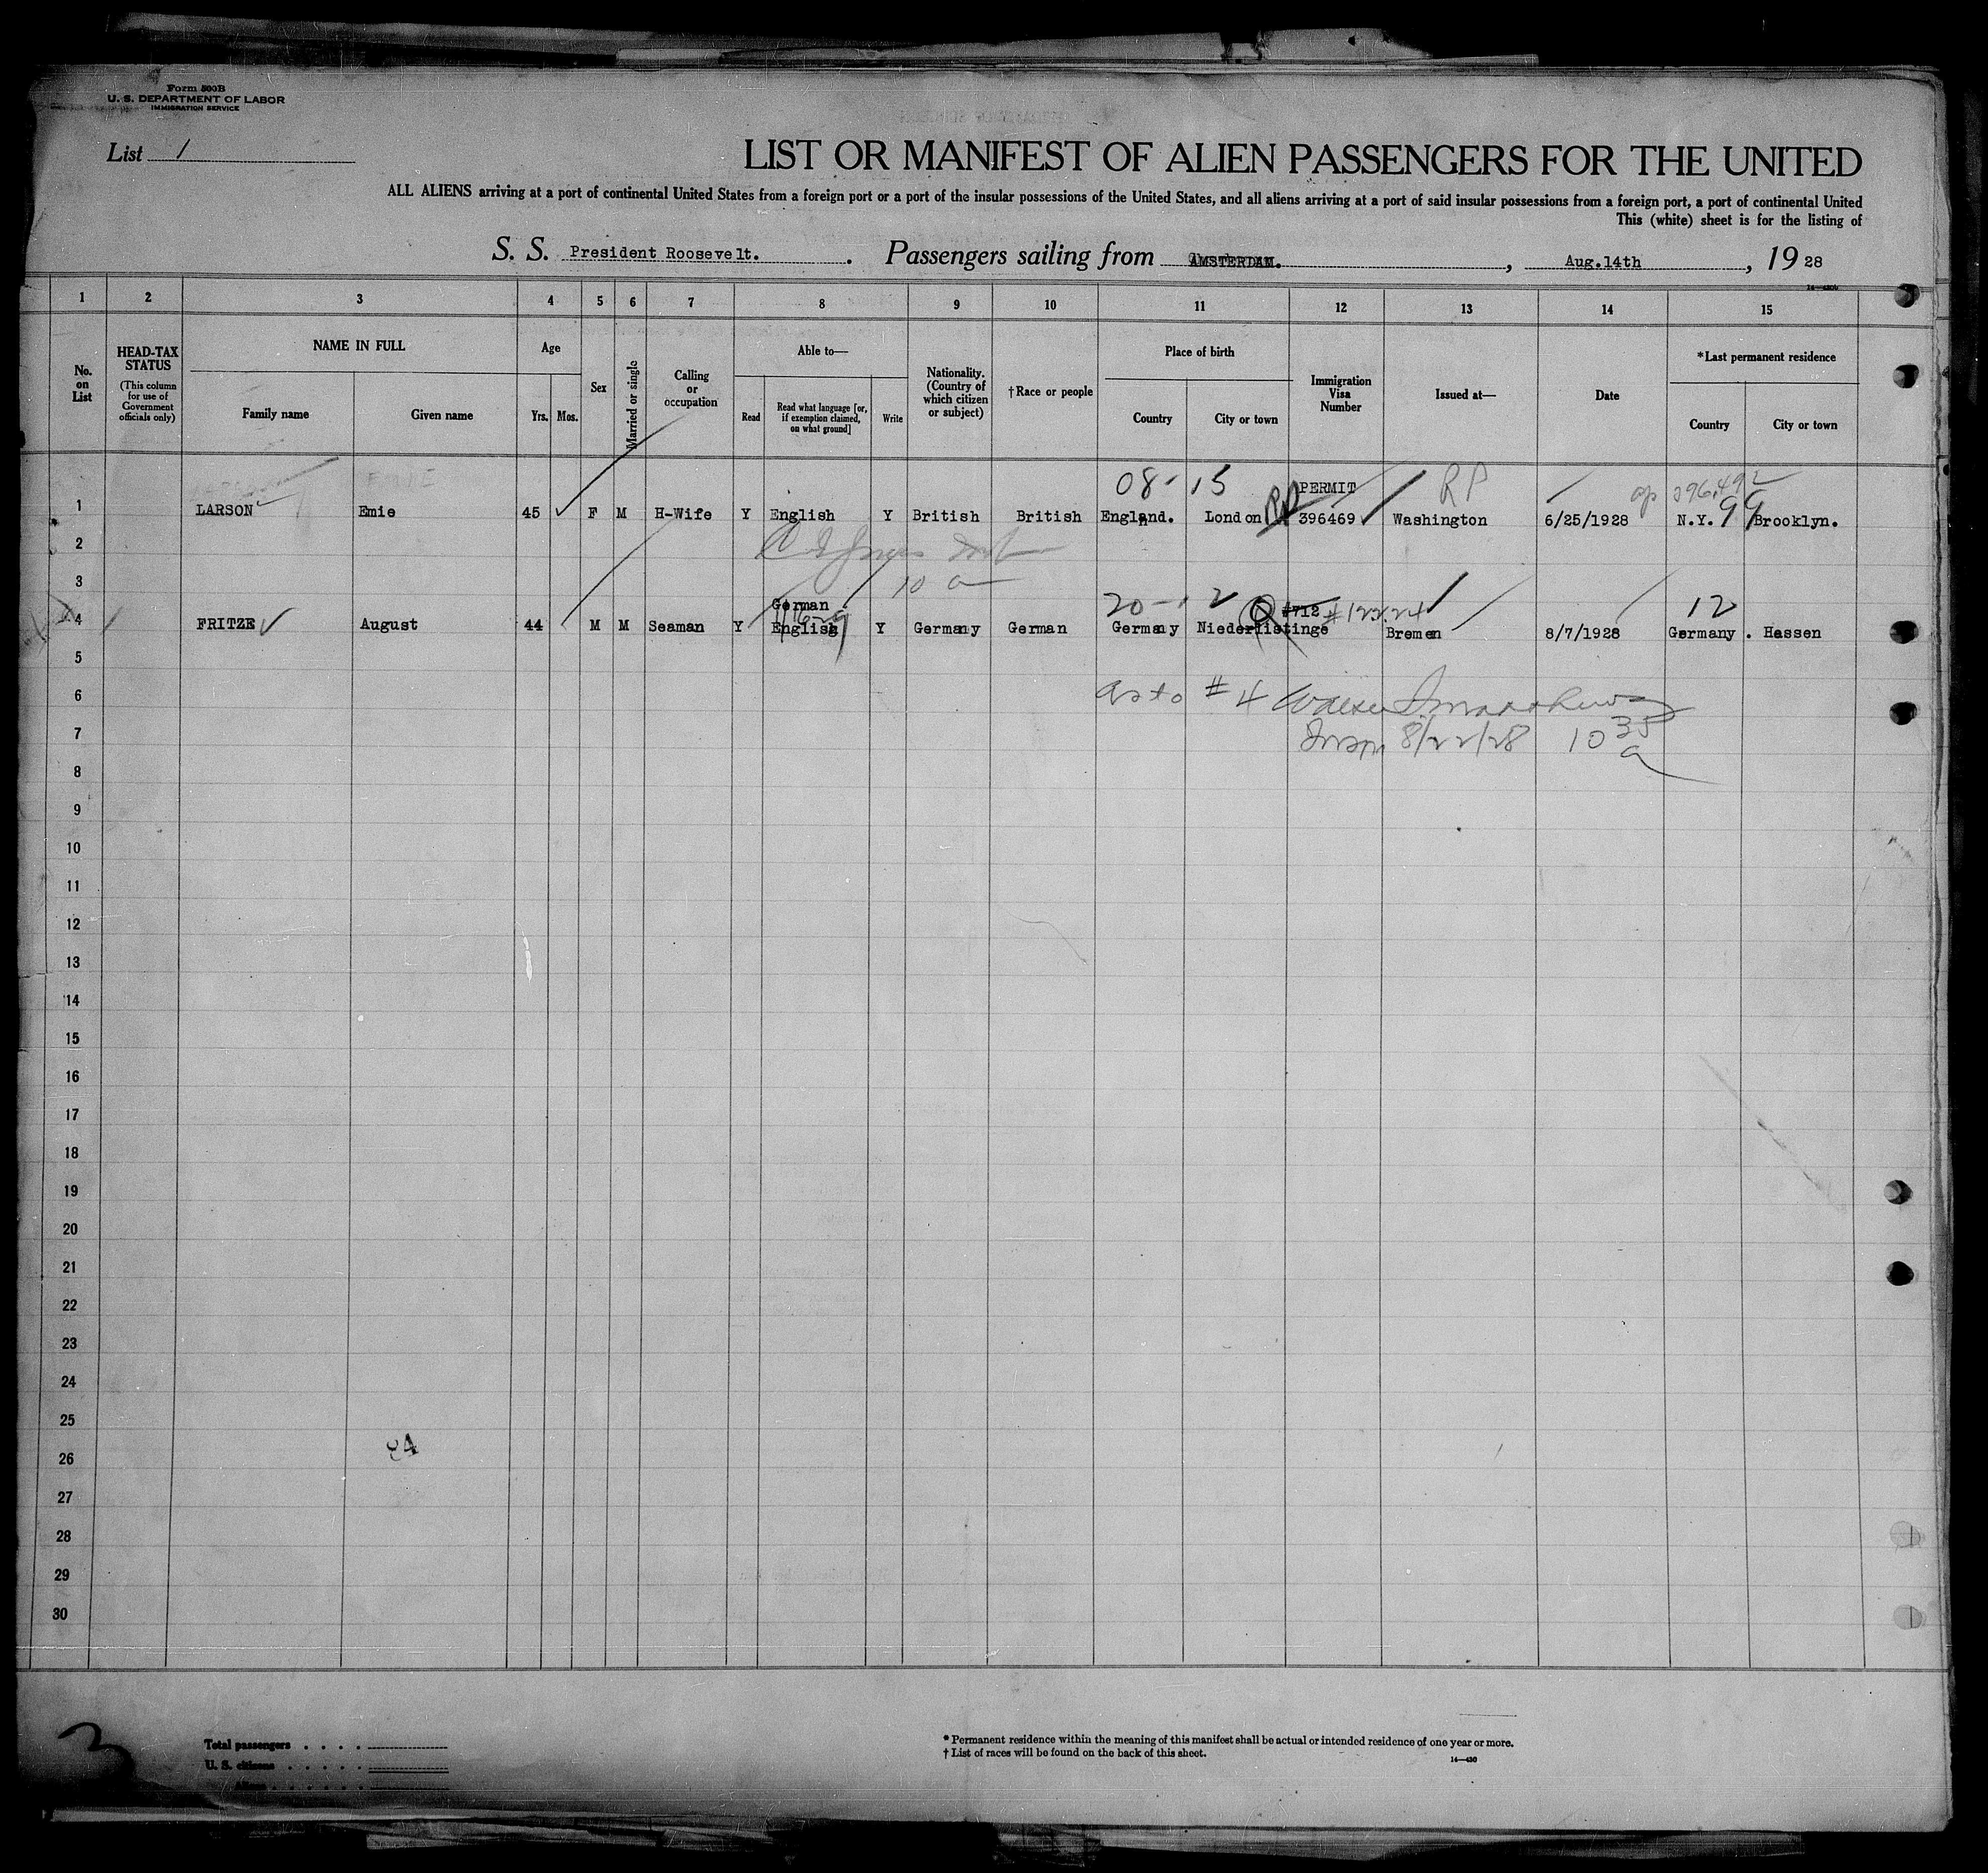 Form 500B
U. S. DEPARTMENT OF LABOR
IMMIGRATION SERVICE
List 1
LIST OR MANIFEST OF ALIEN PASSENGERS FOR THE UNITED
ALL ALIENS arriving at a port of continental United States from a foreign port or a port of the insular possessions of the United States, and all aliens arriving at a port of said insular possessions from a foreign port, a port of continental United
This (white) sheet is for the listing of
S. S. President Roosevelt. Passengers sailing from AMSTERDAM. , Aug.14th , 19 28
1 2 3 4 5 6 7 8 9 10 11 12 13 14 15
No. on List
HEAD-TAX STATUS
(This column for use of Government officials only)
NAME IN FULL
Family name Given name
Age
Yrs. Mos.
Sex
Married or single
Calling or occupation
Able to—
Read
Read what language [or, if exemption claimed, on what ground]
Write
Nationality. (Country of which citizen or subject)
†Race or people
Place of birth
Country City or town
Immigration Visa Number
Issued at—
Date
*Last permanent residence
Country City or town
08-15 PERMIT RP
1 LARSON Emie 45 F M H-Wife Y English Y British British England. London 396469 Washington 6/25/1928 N.Y. 99 Brooklyn.
2
3 10 a
German 20-12 #712 12
4 FRITZE August 44 M M Seaman Y English Y Germany German Germany Niederlistinge Bremen 8/7/1928 Germany. Hassen
5
6 as to #4
7 Insp 8/22/28 10 35 a
8
9
10
11
12
13
14
15
16
17
18
19
20
21
22
23
24
25
26
27
28
29
30
Total passengers
U. S. citizens
Aliens
* Permanent residence within the meaning of this manifest shall be actual or intended residence of one year or more.
† List of races will be found on the back of this sheet.
14—430